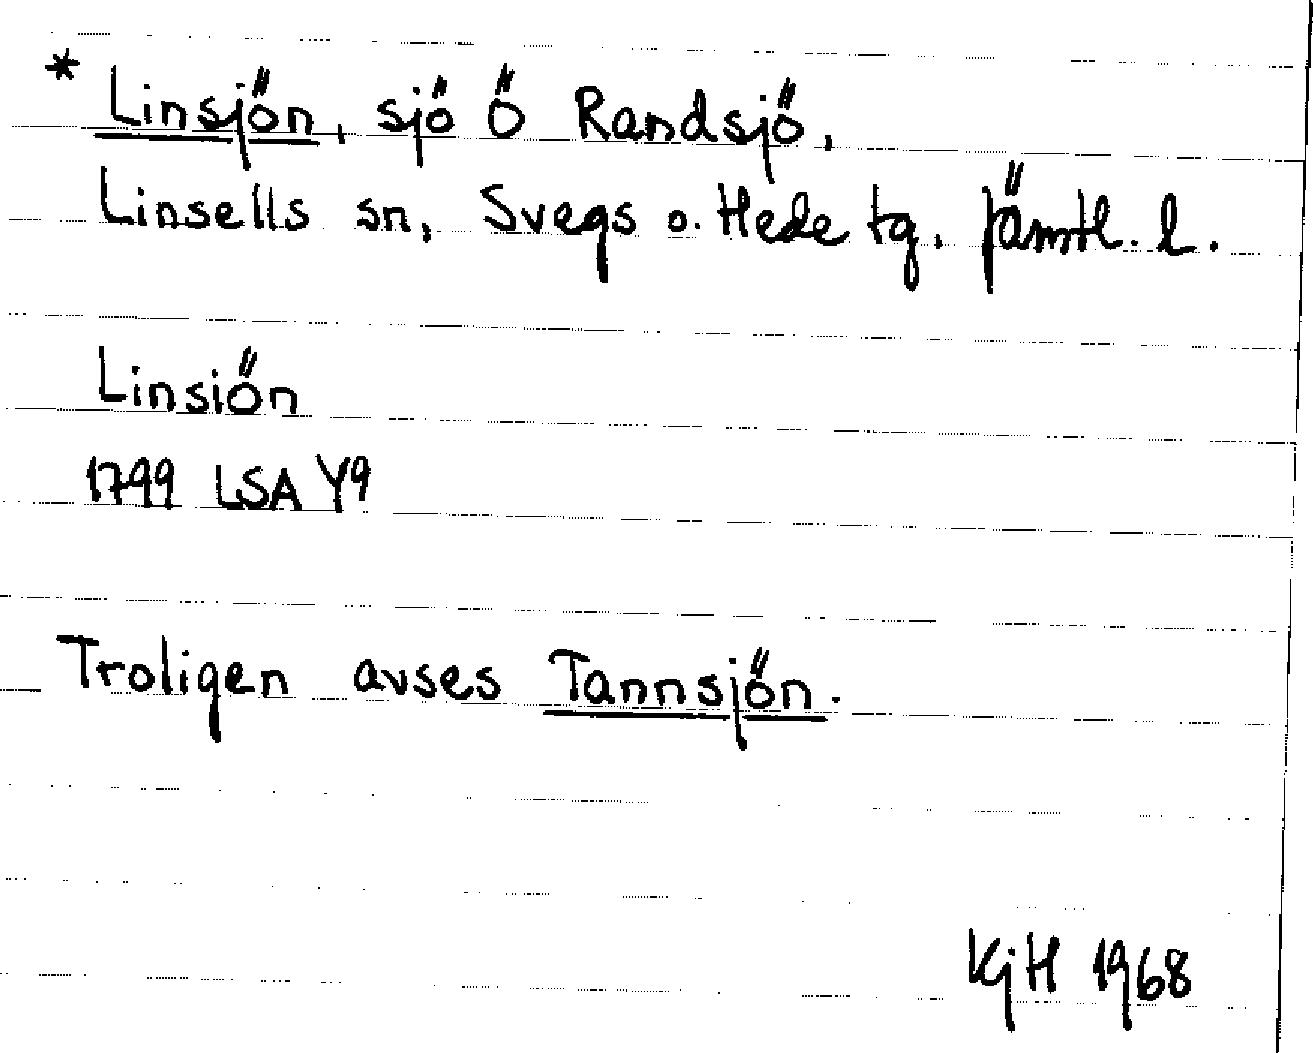 * Linsjön, sjö Ö Randsjö,
Linsells sn, Svegs o. Hede tg, Jämtl. l.
Linsiön
1799 LSA Y9
Troligen avses Tannsjön.
KjH 1968